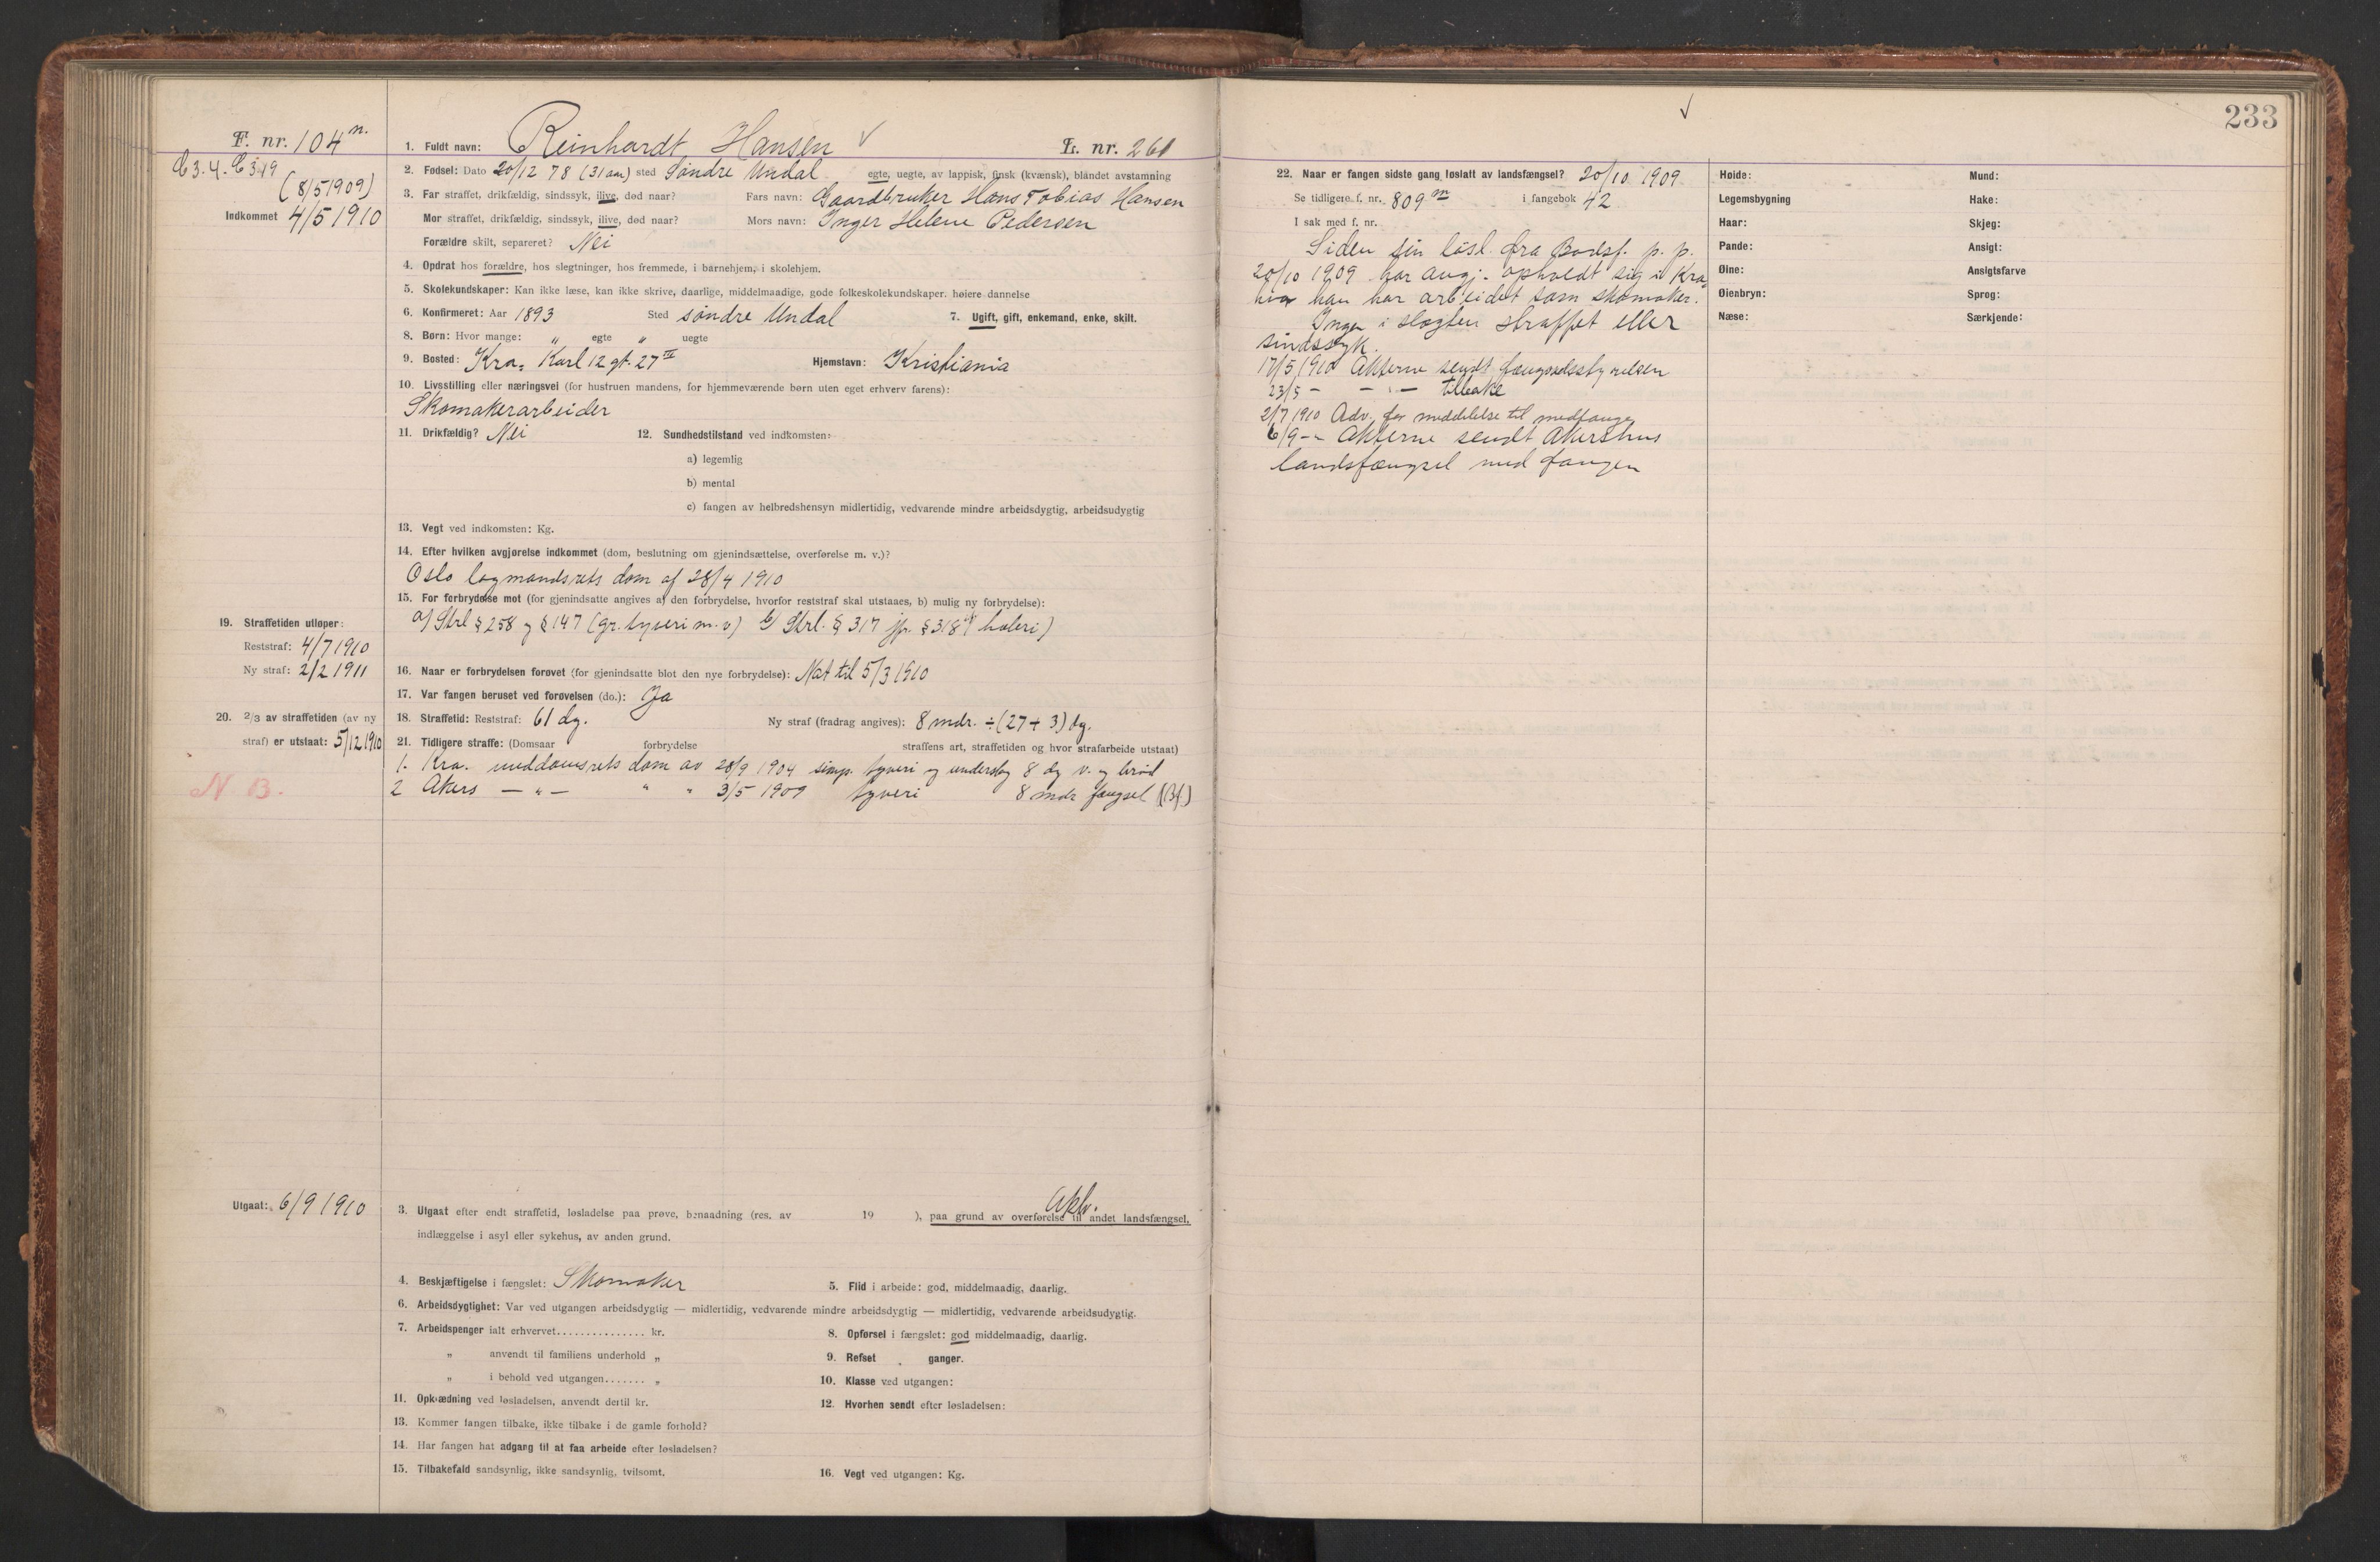 F. nr. 104 n.
C 3. 4. C 3.19
(8/5 1909)
Indkommet 4/5 1910
1. Fuldt navn: Reinhardt Hansen L. nr. 261
2. Fødsel: Dato 20/12 78 (31 aar) sted Søndre Undal egte, uegte, av lappisk, finsk (kvænsk), blandet avstamning
3. Far straffet, drikfældig, sindssyk, ilive, død naar? Fars navn: Gaardbruker Hans Tobias Hansen
Mor straffet, drikfældig, sindssyk, ilive, død naar? Mors navn: Inger Helene Pedersen
Forældre skilt, separeret? Nei
4. Opdrat hos forældre, hos slegtninger, hos fremmede, i barnehjem, i skolehjem.
5. Skolekundskaper: Kan ikke læse, kan ikke skrive, daarlige, middelmaadige, gode folkeskolekundskaper. høiere dannelse
6. Konfirmeret: Aar 1893 Sted søndre Undal 7. Ugift, gift, enkemand, enke, skilt.
8. Børn: Hvor mange: " egte " uegte
9. Bosted: Kra, Karl 12 gt. 27 III Hjemstavn: Kristiania
10. Livsstilling eller næringsvei (for hustruen mandens, for hjemmeværende børn uten eget erhverv farens):
Skomakerarbeider
11. Drikfældig? Nei 12. Sundhedstilstand ved indkomsten:
a) legemlig
b) mental
c) fangen av helbredshensyn midlertidig, vedvarende mindre arbeidsdygtig, arbeidsudygtig
13. Vegt ved indkomsten: Kg.
14. Efter hvilken avgjørelse indkommet (dom, beslutning om gjenindsættelse, overførelse m. v.)?
Oslo lagmandsrets dom af 28/4 1910
15. For forbrydelse mot (for gjenindsatte angives a) den forbrydelse, hvorfor reststraf skal utstaaes, b) mulig ny forbrydelse):
a) Strl § 258 og § 147 (gr. tyveri m. v) b) Strl. § 317 jfr. § 318 (hæleri)
19. Straffetiden utløper:
Reststraf: 4/7 1910
Ny straf: 2/2 1911
16. Naar er forbrydelsen forøvet (for gjenindsatte blot den nye forbrydelse): Nat til 5/3 1910
17. Var fangen beruset ved forøvelsen (do.): Ja
20. 2/3 av straffetiden (av ny
straf) er utstaat: 5/12 1910
18. Straffetid: Reststraf: 61 dg. Ny straf (fradrag angives): 8 mdr. ÷ (27 + 3) dg.
21. Tidligere straffe: (Domsaar forbrydelse straffens art, straffetiden og hvor strafarbeide utstaat)
1. Kra. meddomsrets dom av 28/9 1904 simp. tyveri og underslag 8 dg v. og brød
N B.
2 Akers — " — " " 3/5 1909 tyveri 8 mdr fængsel (Bf.)
Utgaat: 6/9 1910
Akh.
3. Utgaat efter endt straffetid, løsladelse paa prøve, benaadning (res. av 19 ), paa grund av overførelse til andet landsfængsel,
indlæggelse i asyl eller sykehus, av anden grund.
4. Beskjæftigelse i fængslet: Skomaker 5. Flid i arbeide: god, middelmaadig, daarlig.
6. Arbeidsdygtighet: Var ved utgangen arbeidsdygtig — midlertidig, vedvarende mindre arbeidsdygtig — midlertidig, vedvarende arbeidsudygtig.
7. Arbeidspenger ialt erhvervet............... kr. 8. Opførsel i fængslet: god middelmaadig, daarlig.
" anvendt til familiens underhold " 9. Refset ganger.
" i behold ved utgangen....... " 10. Klasse ved utgangen:
11. Opklædning ved løsladelsen, anvendt dertil kr. 12. Hvorhen sendt efter løsladelsen:
13. Kommer fangen tilbake, ikke tilbake i de gamle forhold?
14. Har fangen hat adgang til at faa arbeide efter løsladelsen?
15. Tilbakefald sandsynlig, ikke sandsynlig, tvilsomt. 16. Vegt ved utgangen: Kg.
233
22. Naar er fangen sidste gang løslatt av landsfængsel? 20/10 1909
Se tidligere f. nr. 809 m i fangebok 42
I sak med f. nr.
Siden sin løsl. fra Bodsf. p. p.
20/10 1909 har angj. opholdt sig i Kra,
hvor han har arbeidet som skomaker.
Ingen i slægten straffet eller
sindssyk.
17/5 1910 Akterne sendt fængselsstyrelsen
23/5 — — " — tilbake
2/7 1910 Adv. for meddelelse til medfange
6/9 — " Akterne sendt Akershus
landsfængsel med fangen
Høide: Mund:
Legemsbygning Hake:
Haar: Skjeg:
Pande: Ansigt:
Øine: Ansigtsfarve
Øienbryn: Sprog:
Næse: Særkjende: